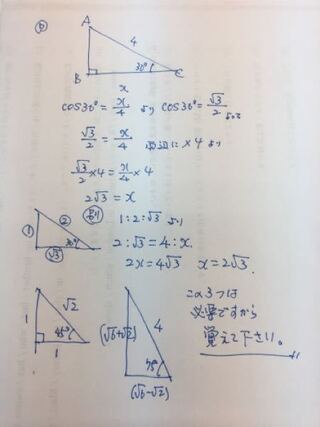 A
4
30°
B
C
x
cos30° = x/4 より cos30° = √3/2 より
√3/2 = x/4 両辺に × 4 より
√3/2 × 4 = x/4 × 4
2√3 = x
別 1 : 2 : √3 より
① ② 30° √3
2 : √3 = 4 : x.
2x = 4√3 x = 2√3.
1 √2 45° 1
(√6+√2) 4 75° (√6-√2)
この3つは
必要ですから
覚えて下さい。